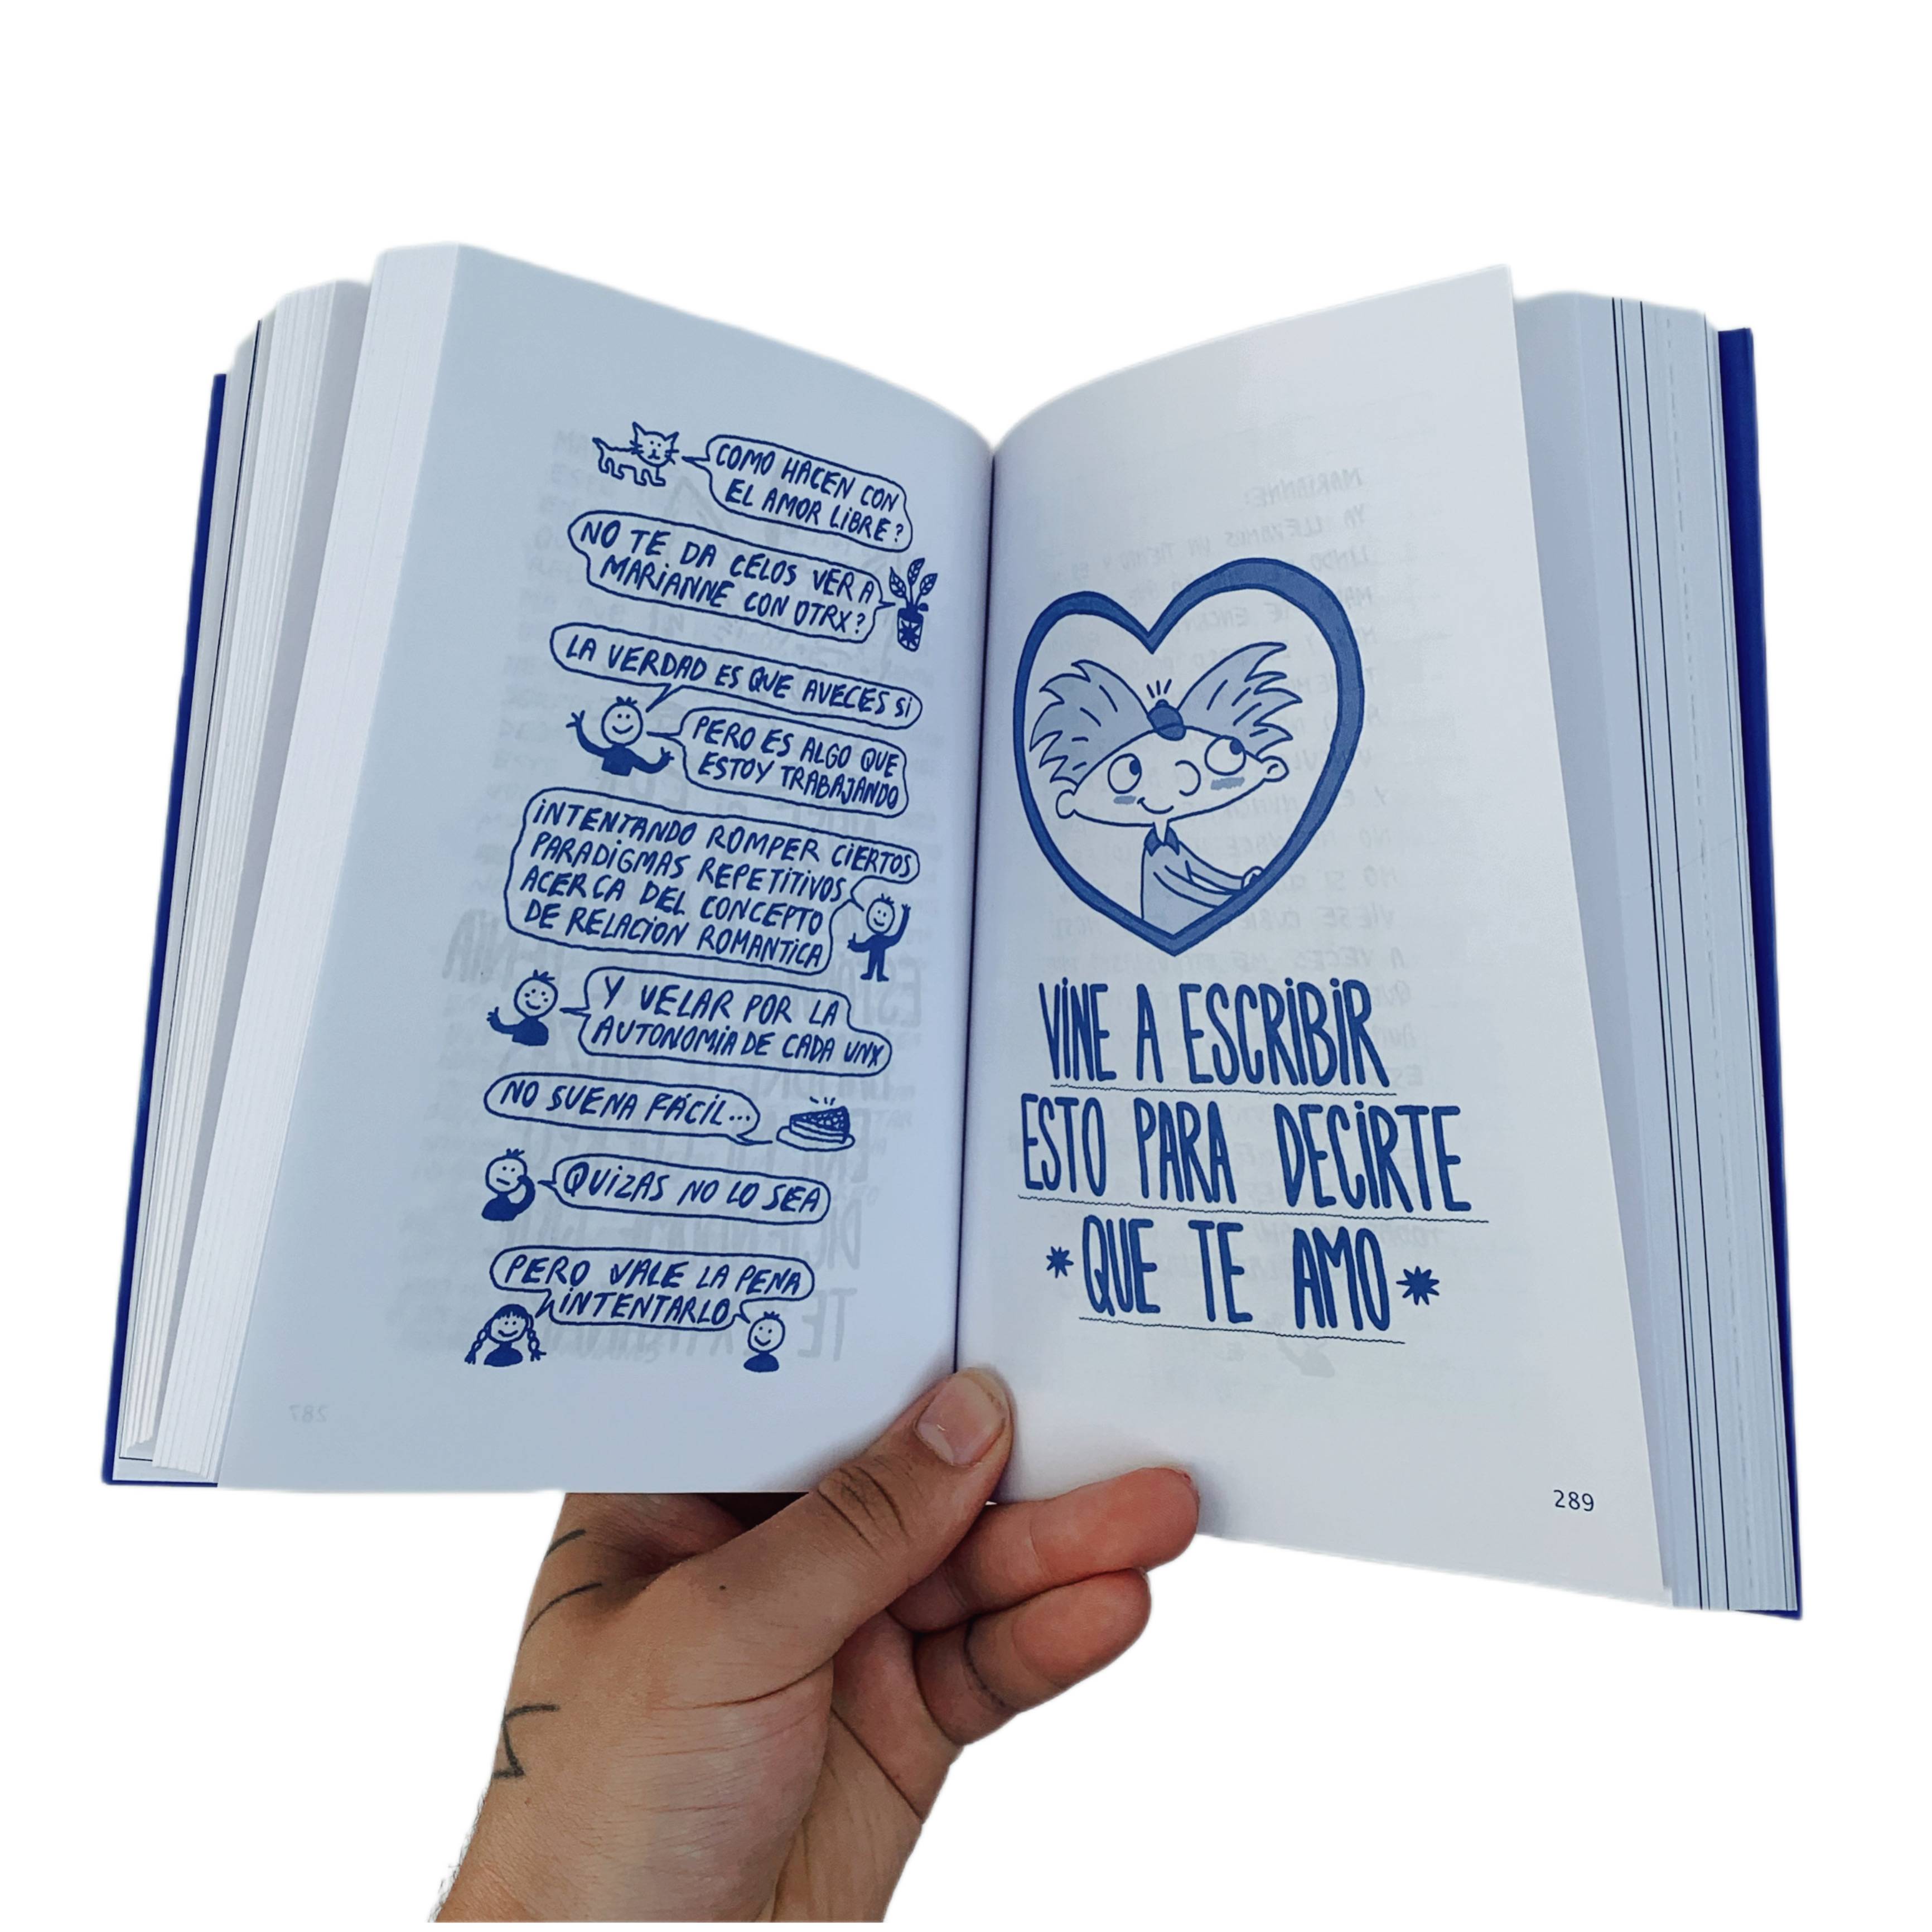 COMO HACEN CON
EL AMOR LIBRE?
NO TE DA CELOS VER A
MARIANNE CON OTRX?
LA VERDAD ES QUE AVECES SI
PERO ES ALGO QUE
ESTOY TRABAJANDO
INTENTANDO ROMPER CIERTOS
PARADIGMAS REPETITIVOS
ACERCA DEL CONCEPTO
DE RELACION ROMANTICA
Y VELAR POR LA
AUTONOMIA DE CADA UNX
NO SUENA FÁCIL...
QUIZAS NO LO SEA
PERO VALE LA PENA
INTENTARLO
287
VINE A ESCRIBIR
ESTO PARA DECIRTE
*QUE TE AMO*
289